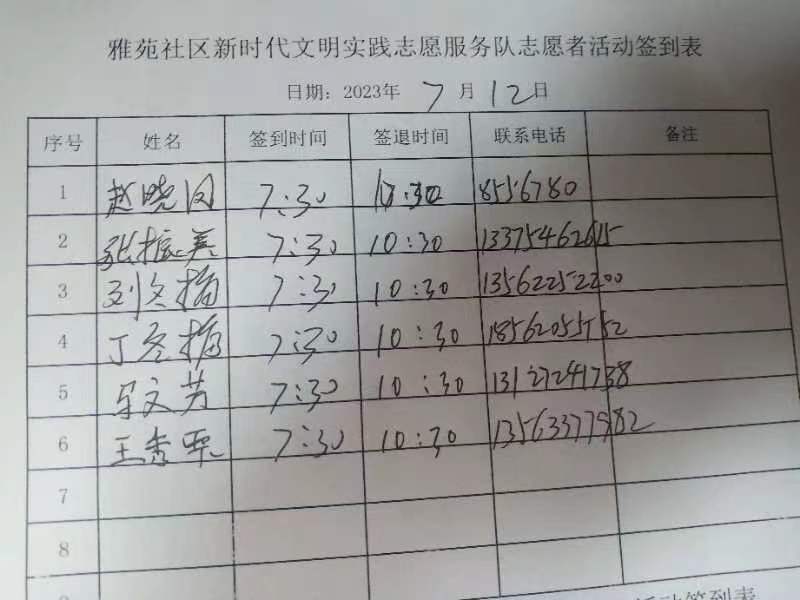 雅苑社区新时代文明实践志愿服务队志愿者活动签到表
日期：2023年 7 月 12 日
序号 姓名 签到时间 签退时间 联系电话 备注
1 赵晓 7:30 10:30 8556780
2 张振英 7:30 10:30 13375462615
3 刘冬梅 7:30 10:30 13562252200
4 丁冬梅 7:30 10:30
5 文芳 7:30 10:30 13127241738
6 王秀 7:30 10:30 13563377582
7
8
活动签到表